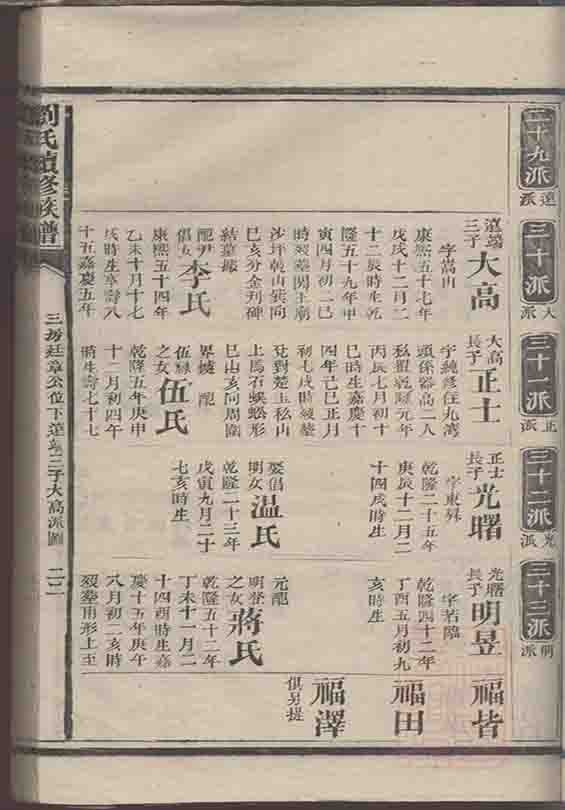 二十九派
遠派
三十派
大派
三十一派
正派
三十二派
光派
三十三派
明派
遠端
三子
大高
字嵩山
康熙五十七年
戊戌十二月二
十二辰時生乾
隆五十九年甲
寅四月初二巳
時歿墓閔王廟
沙坪乾山巽向
巳亥分金刋碑
結墓
配尹
倡女
李氏
康熙五十四年
乙未十月十七
戌時生享壽八
十五嘉慶五年
大高
長子
正士
字純修住九湾
頭係器高二人
私置乾隆元年
丙辰七月初十
巳時生嘉慶十
四年己巳正月
初七戌時歿塟
兌對楚玉私山
上馬石蜈蚣形
巳山亥向周圍
界 配
伍緣
之女
伍氏
乾隆五年庚申
十二月初四午
時生壽七十七
正士
長子
光曙
字東昇
乾隆二十五年
庚辰十二月二
十四戌時生
娶倡
明女
温氏
乾隆二十三年
戊寅九月二十
七亥時生
光曙
長子
明昱
字若臨
乾隆四十二年
丁酉五月初九
亥時生
元配
明
之女
蔣氏
乾隆五十二年
丁未十一月二
十四酉時生嘉
慶十五年庚午
八月初二亥時
歿塟甪形上至
福皆
福田
福澤
俱另提
劉氏續修族譜
三房廷章公位下遠端三子大高派圖
二二